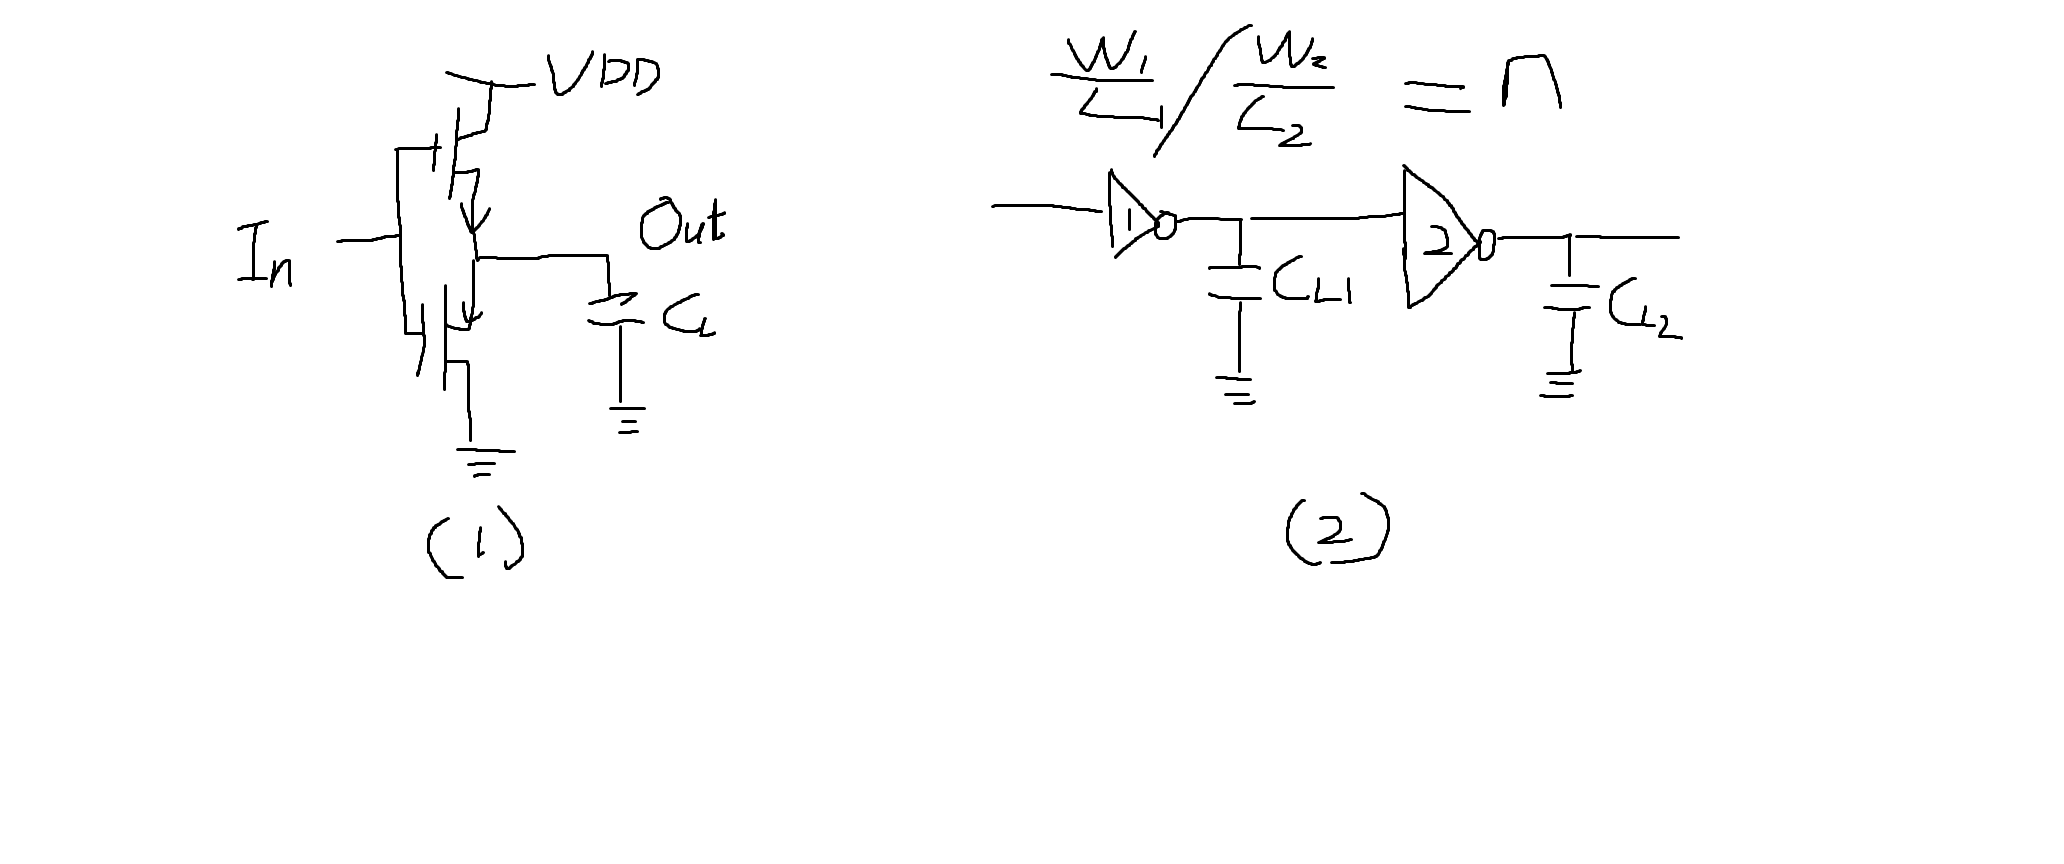 VDD
In
Out
CL
(1)
W1/L1 / W2/L2 = n
1
2
CL1
CL2
(2)